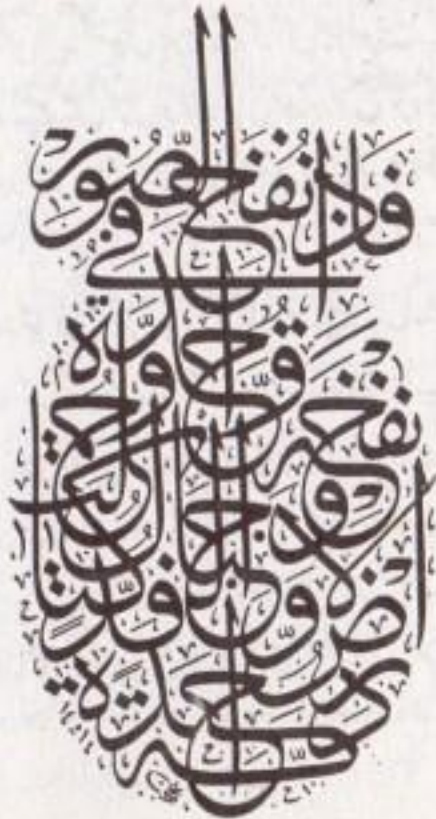 فَإِذَا نُفِخَ فِي الصُّورِ
نَفْخَةٌ وَّاحِدَةٌ
وَحُمِلَتِ الْأَرْضُ وَالْجِبَالُ فَدُكَّتَا
دَكَّةً وَّاحِدَةً